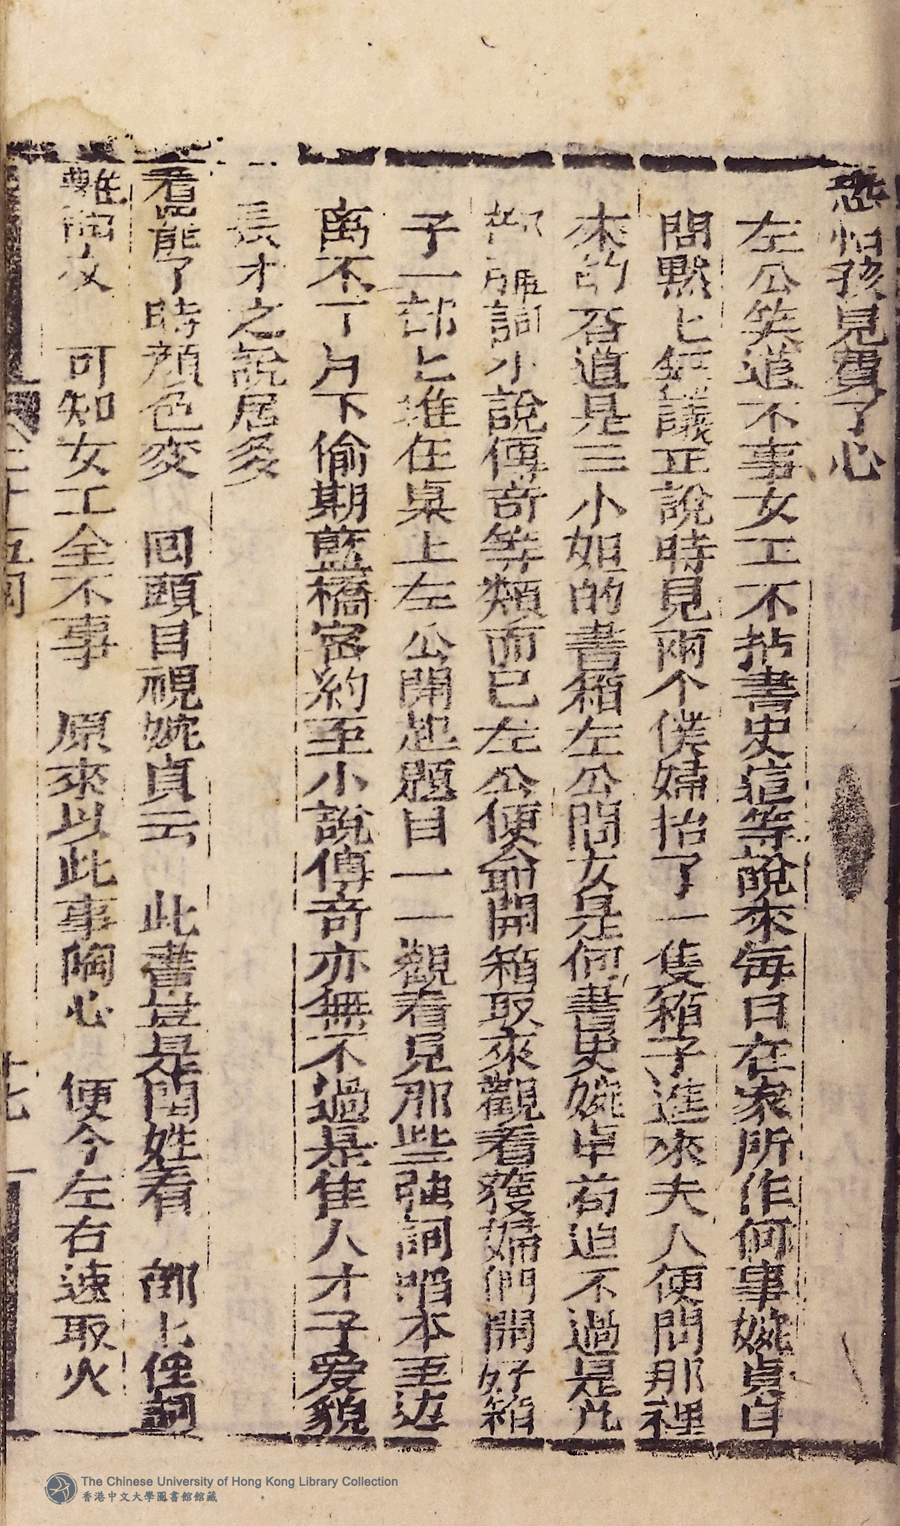 恐怕孩兒費了心
左公笑道不事女工不拈書史這等說來每日在家所作何事婉貞自
問默匕無議正說時見兩个僕婦抬了一隻箱子進來夫人便問那裡
來的答道是三小姐的書箱左公問女是何書史婉貞 道不過是几
部 詞小說傳奇等類而已左公便命開箱取來觀看 婦們開好箱
子一部匕堆在桌上左公開起題目一一觀看見那些 詞 本至
离不了月下偷期藍橋密約至小說傳奇亦無不過是佳人才子爱貌
長才之說居多
看 能了時顏色変 回頭目視婉貞云 此書豈是閨 看 部匕 詞
難 可知女工全不事 原來以此事陶心 便令左右速取火
十五回
十七
The Chinese University of Hong Kong Library Collection
香港中文大學圖書館館藏